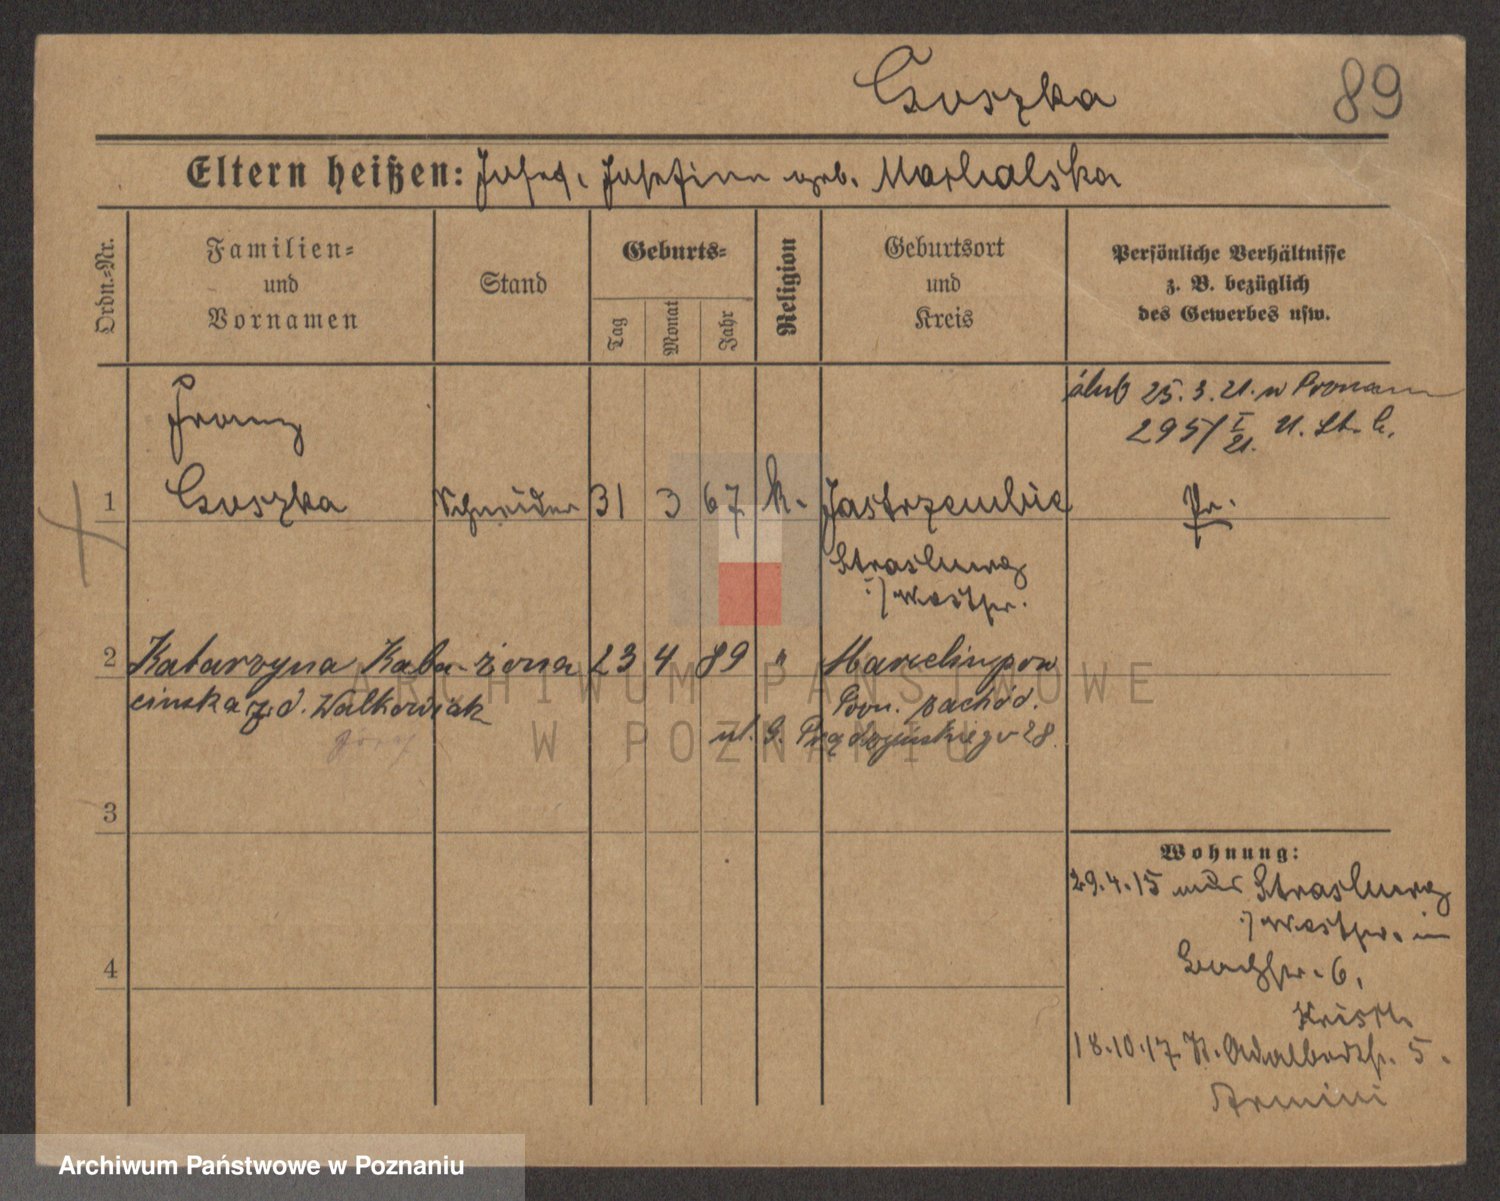 Czoszka
89
Eltern heißen: Josef, Josefina geb. Marhalska
Ordn.-Nr.
Familien- und Vornamen
Stand
Geburts-
Tag
Monat
Jahr
Religion
Geburtsort und Kreis
Persönliche Verhältnisse z. B. bezüglich des Gewerbes usw.
ślub 25.3.21. w
295/I 21. U. St. C.
Franz
1 Czoszka Schneider 31 3 67 k. Jastrzembie Pr.
Strasburg
i/Westpr.
2 Katarzyna Kaba- żona 23 4 89 " Marcelinpow
cinska z d. Walkowiak Pozn. zachód.
Józef
ul. G. Prądzyńskiego 28.
3
4
Wohnung:
29.4.15 aus Strasburg
i/Westpr. in
6.
18.10.17 St. Adalbertstr. 5.
ARCHIWUM PAŃSTWOWE
W POZNANIU
Archiwum Państwowe w Poznaniu